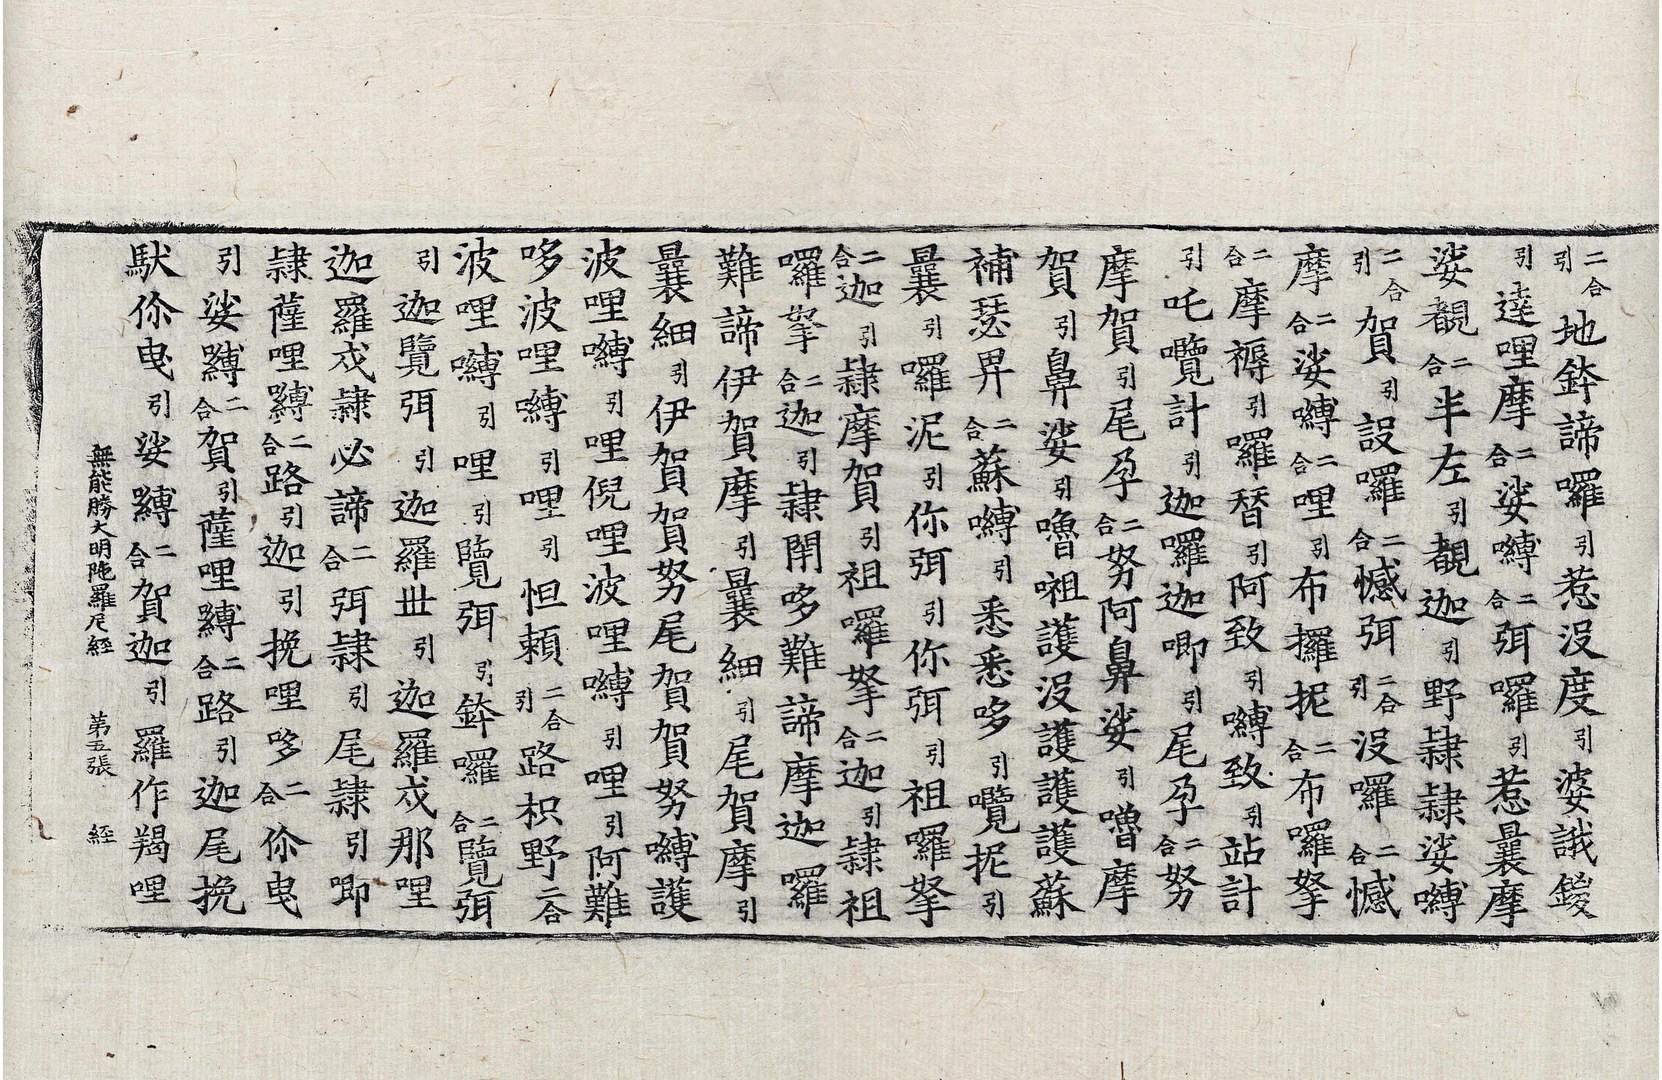 二合引地鉢諦囉引惹沒度引婆誐鑁
引達哩摩二合娑嚩二合弭囉引惹曩摩
娑覩二合半左引覩迦引野隷隷娑嚩
二合引賀引設囉二合憾弭二合引沒囉二合憾
摩二合娑嚩二合哩引布攞抳二合布囉拏
二合摩褥引囉朁引阿致引嚩致引站計
引吒嚂計引迦囉迦唧引尾孕二合努
摩賀引尾孕二合努阿鼻娑引嚕摩
賀引鼻娑引嚕唨護沒護護護蘇
補瑟畀二合蘇嚩引悉悉哆引嚂抳引
曩引囉泥引你弭引你弭引祖囉拏
二合迦引隷摩賀引祖囉拏二合迦引隷祖
囉拏二合迦引隷閉哆難諦摩迦囉
難諦伊賀摩引曩細引尾賀摩引
曩細引伊賀賀努尾賀賀努嚩護
波哩嚩引哩倪哩波哩嚩引哩引阿難
哆波哩嚩引哩引怛賴二合引路枳野二合
波哩嚩引哩引覽弭引鉢囉二合覽弭
引迦覽弭引迦羅世引迦羅戍那哩
迦羅戍隷必諦二合弭隷引尾隷引唧
隷薩哩嚩二合路引迦引挽哩哆二合你曳
引娑嚩二合賀引薩哩嚩二合路引迦尾挽
馱你曳引娑嚩二合賀迦引羅作羯哩
無能勝大明陁羅尼經 第五張 經